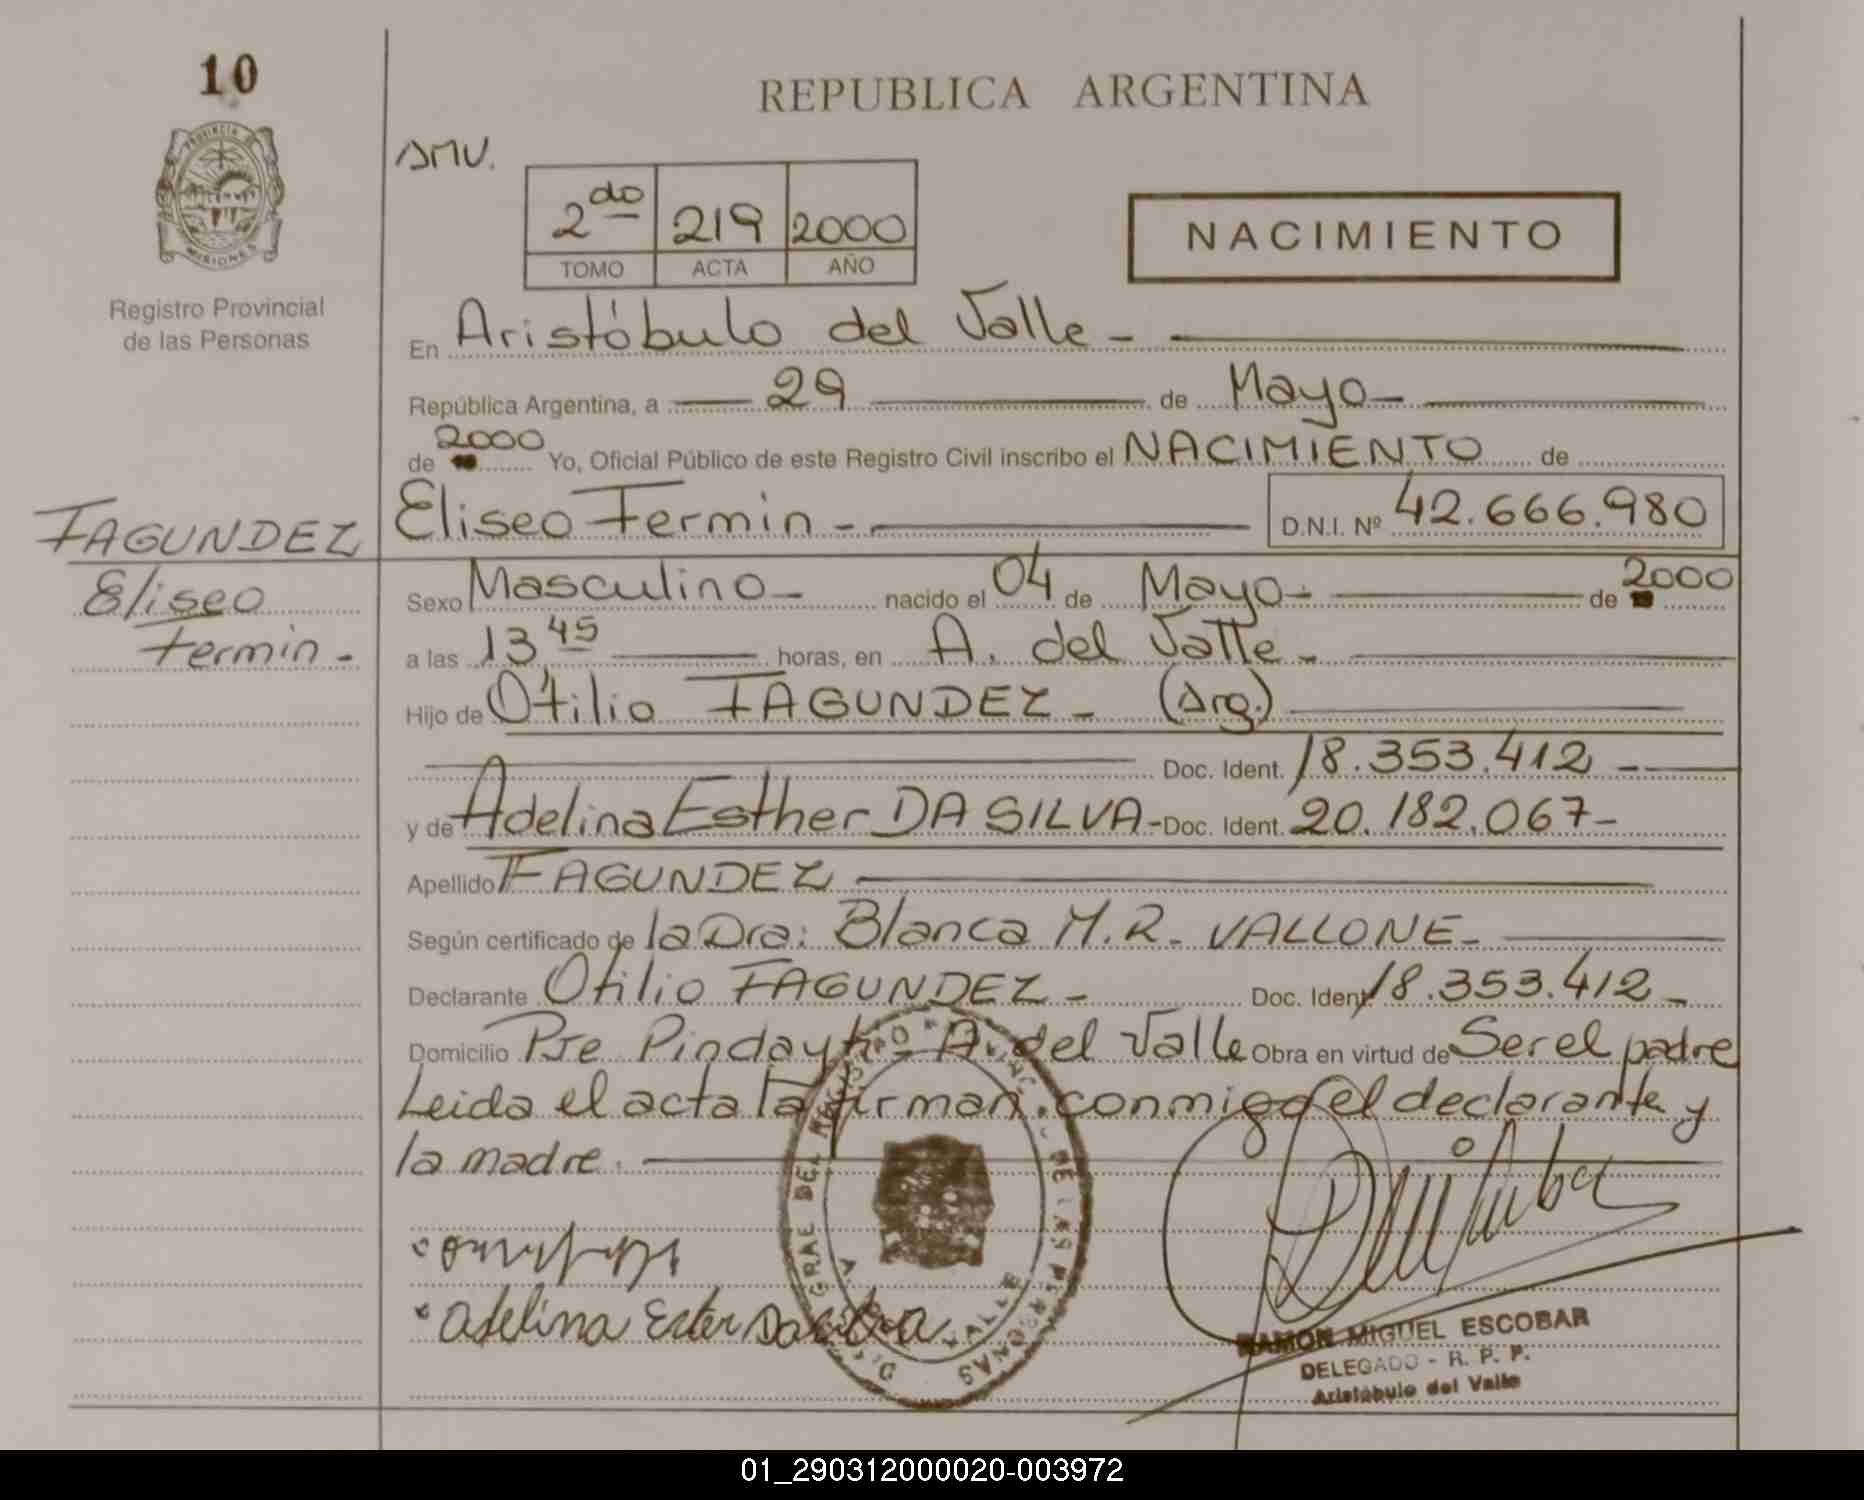 10
REPUBLICA ARGENTINA
PROVINCIA DE
MISIONES
Registro Provincial
de las Personas
SMV.
2do 219 2000
TOMO ACTA AÑO
NACIMIENTO
En Aristóbulo del Valle -
República Argentina, a 29 de Mayo
de 2000 Yo, Oficial Público de este Registro Civil inscribo el NACIMIENTO de
FAGUNDEZ
Eliseo Fermin - D.N.I. Nº 42.666.980
Eliseo
Fermin -
Sexo Masculino - nacido el 04 de Mayo - de 2000
a las 13,45 horas, en A. del Valle -
Hijo de Otilio FAGUNDEZ - (Arg.)
Doc. Ident. 18.353.412 -
y de Adelina Esther DA SILVA - Doc. Ident. 20.182.067 -
Apellido FAGUNDEZ
Según certificado de la Dra: Blanca M.R. VALLONE -
Declarante Otilio FAGUNDEZ - Doc. Ident. 18.353.412 -
Domicilio Pje Pindayti - A. del Valle Obra en virtud de Ser el padre
Leida el acta la firman conmigo el declarante y
la madre.
adelina Ester Da silva
RAMON MIGUEL ESCOBAR
DELEGADO - R. P. P.
Aristóbulo del Valle
01_290312000020-003972